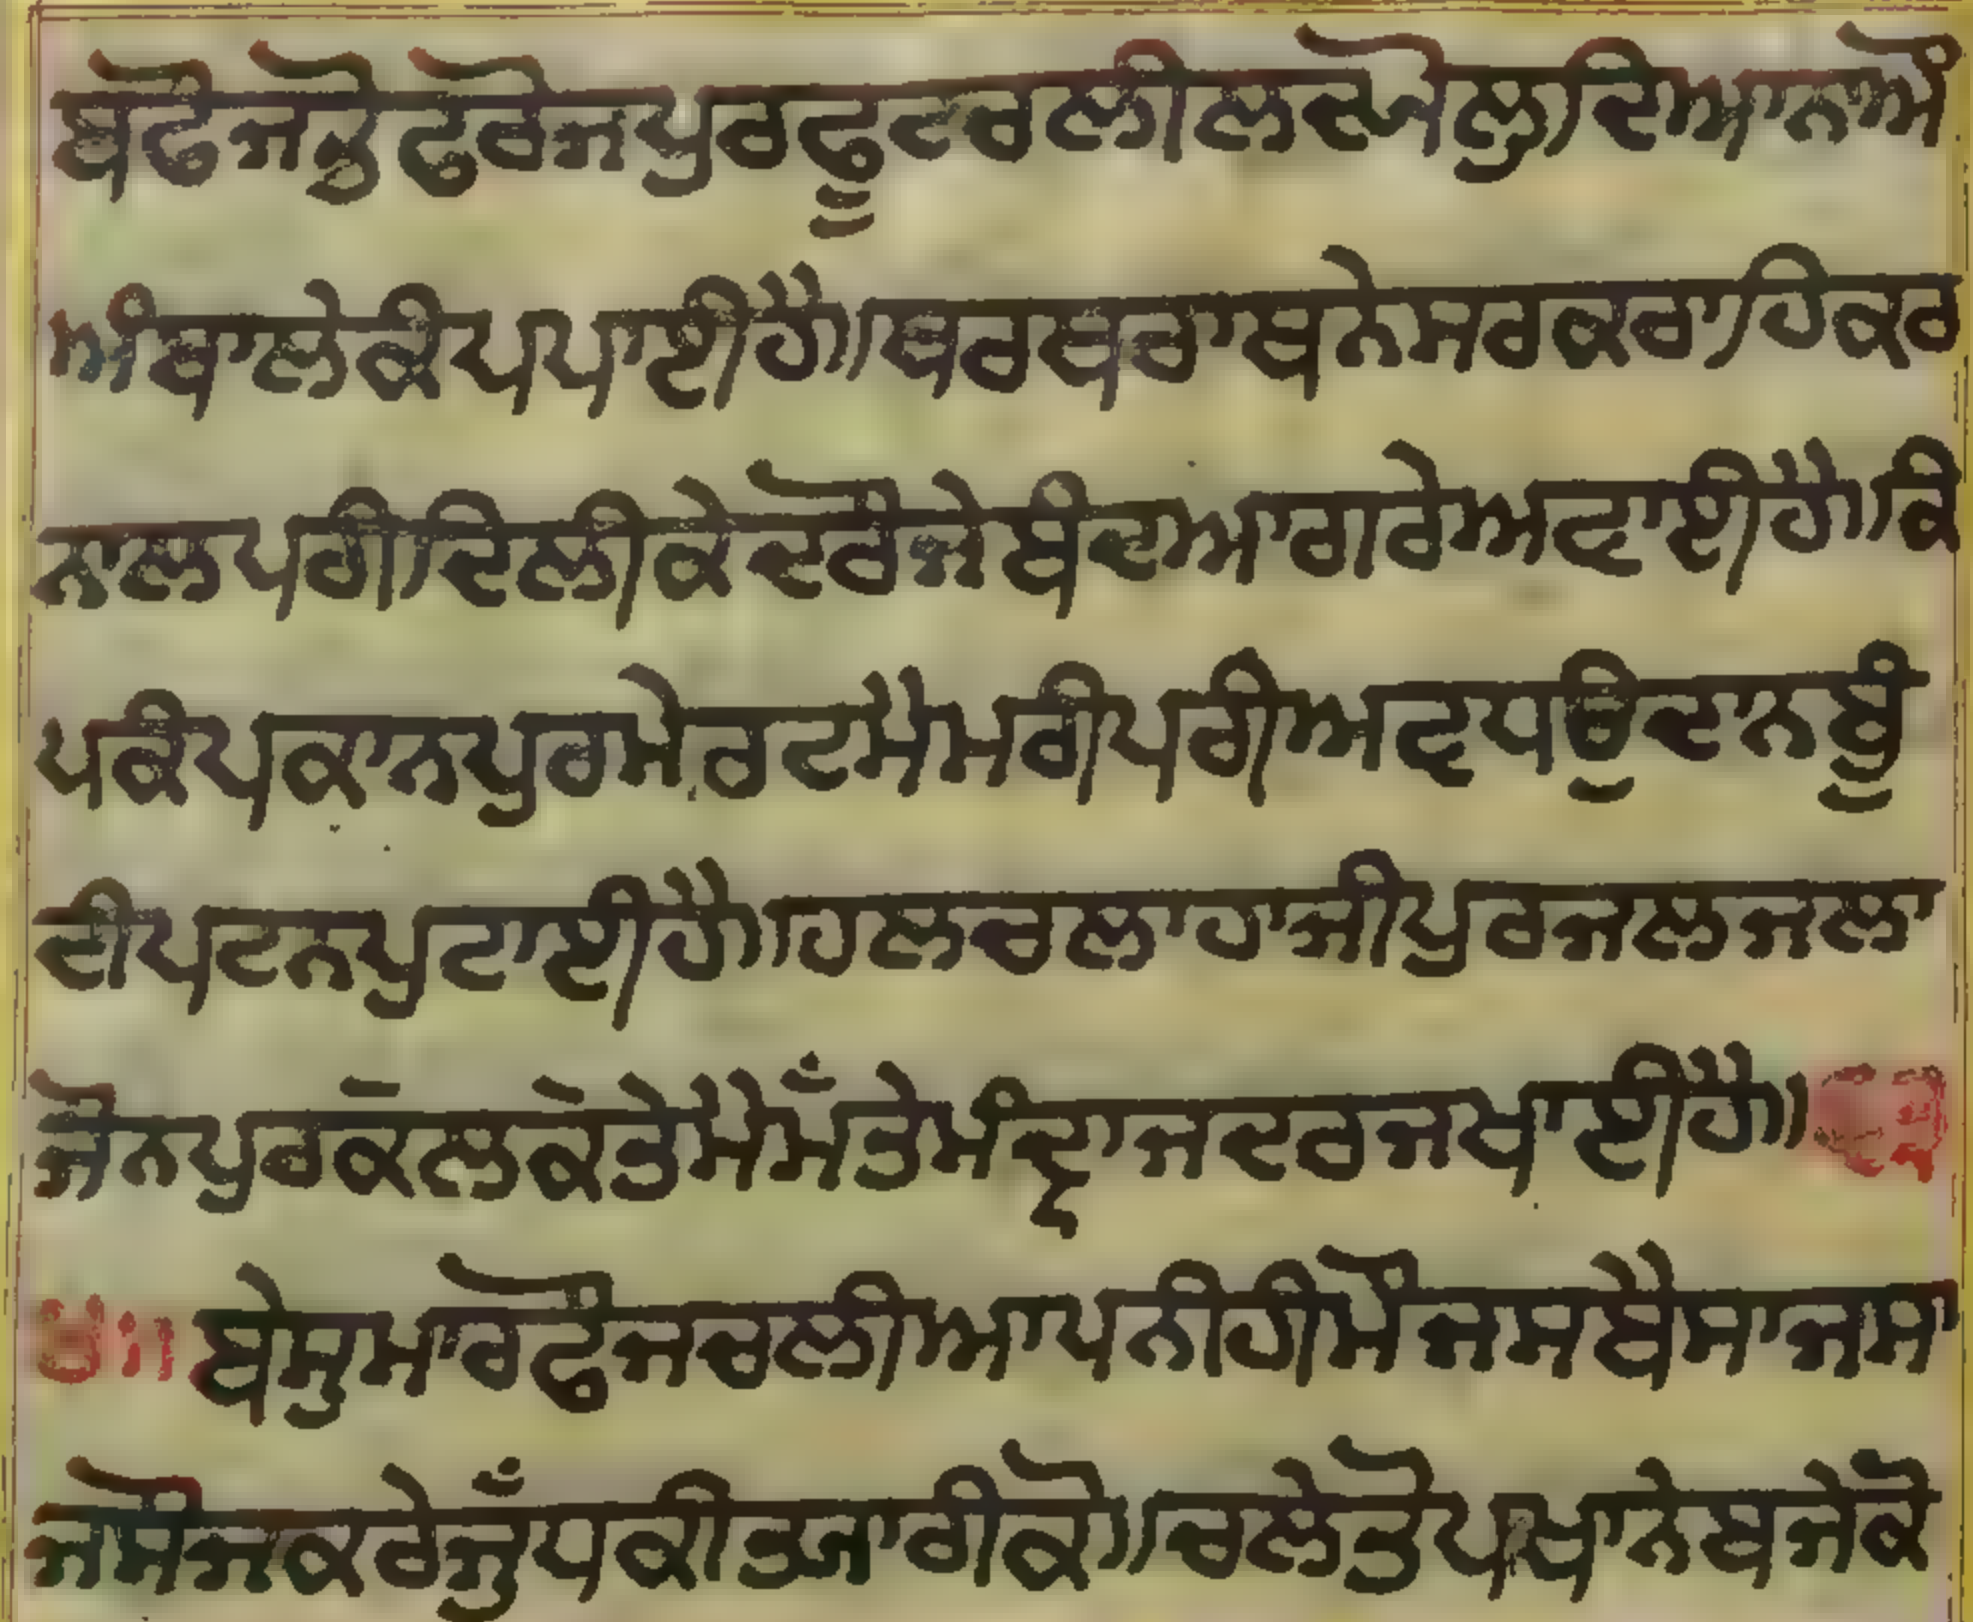 ਬਢੋਜਤੁਫੋਰੋਜਪੁਰਫੂਟਚਲੀਲਸਯੋਲੁ।ਦਿਆਨਾਮੌ
ਅੰਬਾਲੇਕੀਪਪਾਈਹੈ॥ਥਰਥਰਾਥਨੇਸਰਕਰਾ।ਹਿਕਰ
ਨਾਲਪਰੀ।ਦਿਲੀਕੇਦਰੌਜੇਬੰਦਆਗਰੇਅਟਾਈਹੈ॥ਕਿ
ਪਕੀਪਕਾਨਪੁਰਮੇਰਟਮੈਮਰੀਪਰੀਅਟਪਊਦਾਨਬੂੰ
ਦੀਪਟਨਪੁਟਾਈਹੈ॥ਹਲਚਲਾਹਾਜੀਪੁਰਜਲਜਲਾ
ਜੋਨਪੁਰਕਲਕੇਤੇਮੈਮੱਤੇਮੰਦ੍ਰਾਜਦਰਜਖਾਈਹੈ॥
ਬੇਸੁਮਾਰਫੌਜਚਲੀਆਪਨੀਹੀਮੌਜਸਬੈਸਾਜਸਾ
ਜਸੌਜਕਰੇਜੁੱਧਕੀਤਯਾਰੀਕੋ॥ਚਲੇਤੋਪਖਾਨੇਬਜੇਕੋ